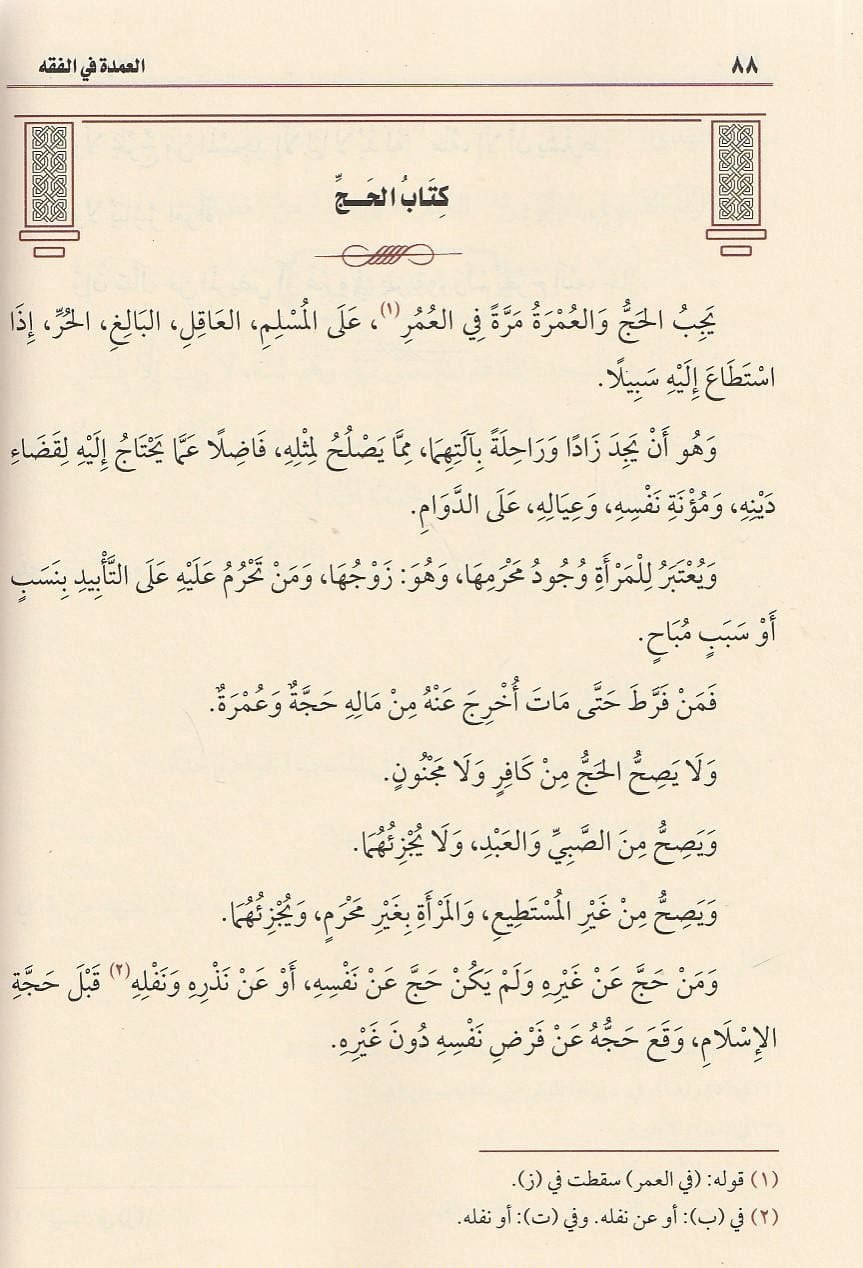 ٨٨ العمدة في الفقه
كِتَابُ الحَجِّ
يَجِبُ الحَجُّ وَالعُمْرَةُ مَرَّةً فِي العُمُرِ(١)، عَلَى المُسْلِمِ، العَاقِلِ، البَالِغِ، الحُرِّ، إِذَا
اسْتَطَاعَ إِلَيْهِ سَبِيلًا.
وَهُو أَنْ يَجِدَ زَادًا وَرَاحِلَةً بِآلَتِهِمَا، مِمَّا يَصْلُحُ لِمْثلِهِ، فَاضِلًا عَمَّا يَحْتَاجُ إِلَيْهِ لِقَضَاءِ
دَيْنِهِ، وَمُؤْنَةِ نَفْسِهِ، وَعِيَالِهِ، عَلَى الدَّوَامِ.
وَيُعْتَبَرُ لِلْمَرْأَةِ وُجُودُ مَحْرَمِهَا، وَهُوَ: زَوْجُهَا، وَمَنْ تَحْرُمُ عَلَيْهِ عَلَى التَّأْبِيدِ بِنَسَبٍ
أَوْ سَبَبٍ مُبَاحٍ.
فَمَنْ فَرَّطَ حَتَّى مَاتَ أُخْرِجَ عَنْهُ مِنْ مَالِهِ حَجَّةٌ وَعُمْرَةٌ.
وَلَا يَصِحُّ الحَجُّ مِنْ كَافِرٍ وَلَا مَجْنُونٍ.
وَيَصِحُّ مِنَ الصَّبِيِّ وَالعَبْدِ، وَلَا يُجْزِئُهُمَا.
وَيَصِحُّ مِنْ غَيْرِ المُسْتَطِيعِ، وَالمَرْأَةِ بِغَيْرِ مَحْرَمٍ، وَيُجْزِئُهُمَا.
وَمَنْ حَجَّ عَنْ غَيْرِهِ وَلَمْ يَكُنْ حَجَّ عَنْ نَفْسِهِ، أَوْ عَنْ نَذْرِهِ وَنَفْلِهِ(٢) قَبْلَ حَجَّةِ
الإِسْلَامِ، وَقَعَ حَجُّهُ عَنْ فَرْضِ نَفْسِهِ دُونَ غَيْرِهِ.
(١) قوله: (في العمر) سقطت في (ز).
(٢) في (ب): أو عن نفله. وفي (ت): أو نفله.